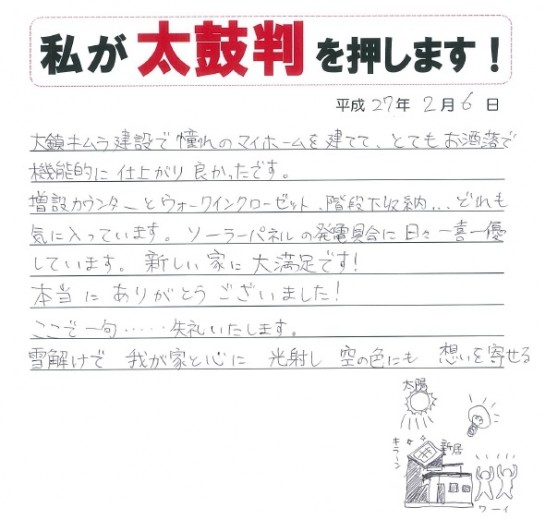 私が太鼓判を押します！
平成27年2月6日
大鎮キムラ建設で憧れのマイホームを建てて、とてもお洒落で
機能的に仕上がり良かったです。
増設カウンターとウォークインクローゼット、階段下収納...どれも
気に入っています。ソーラーパネルの発電具合に日々一喜一優
しています。新しい家に大満足です!
本当にありがとうございました!
ここで一句……失礼いたします。
雪解けで 我が家と心に 光射し 空の色にも 想いを寄せる
太陽
キラーン
新居
ワーイ